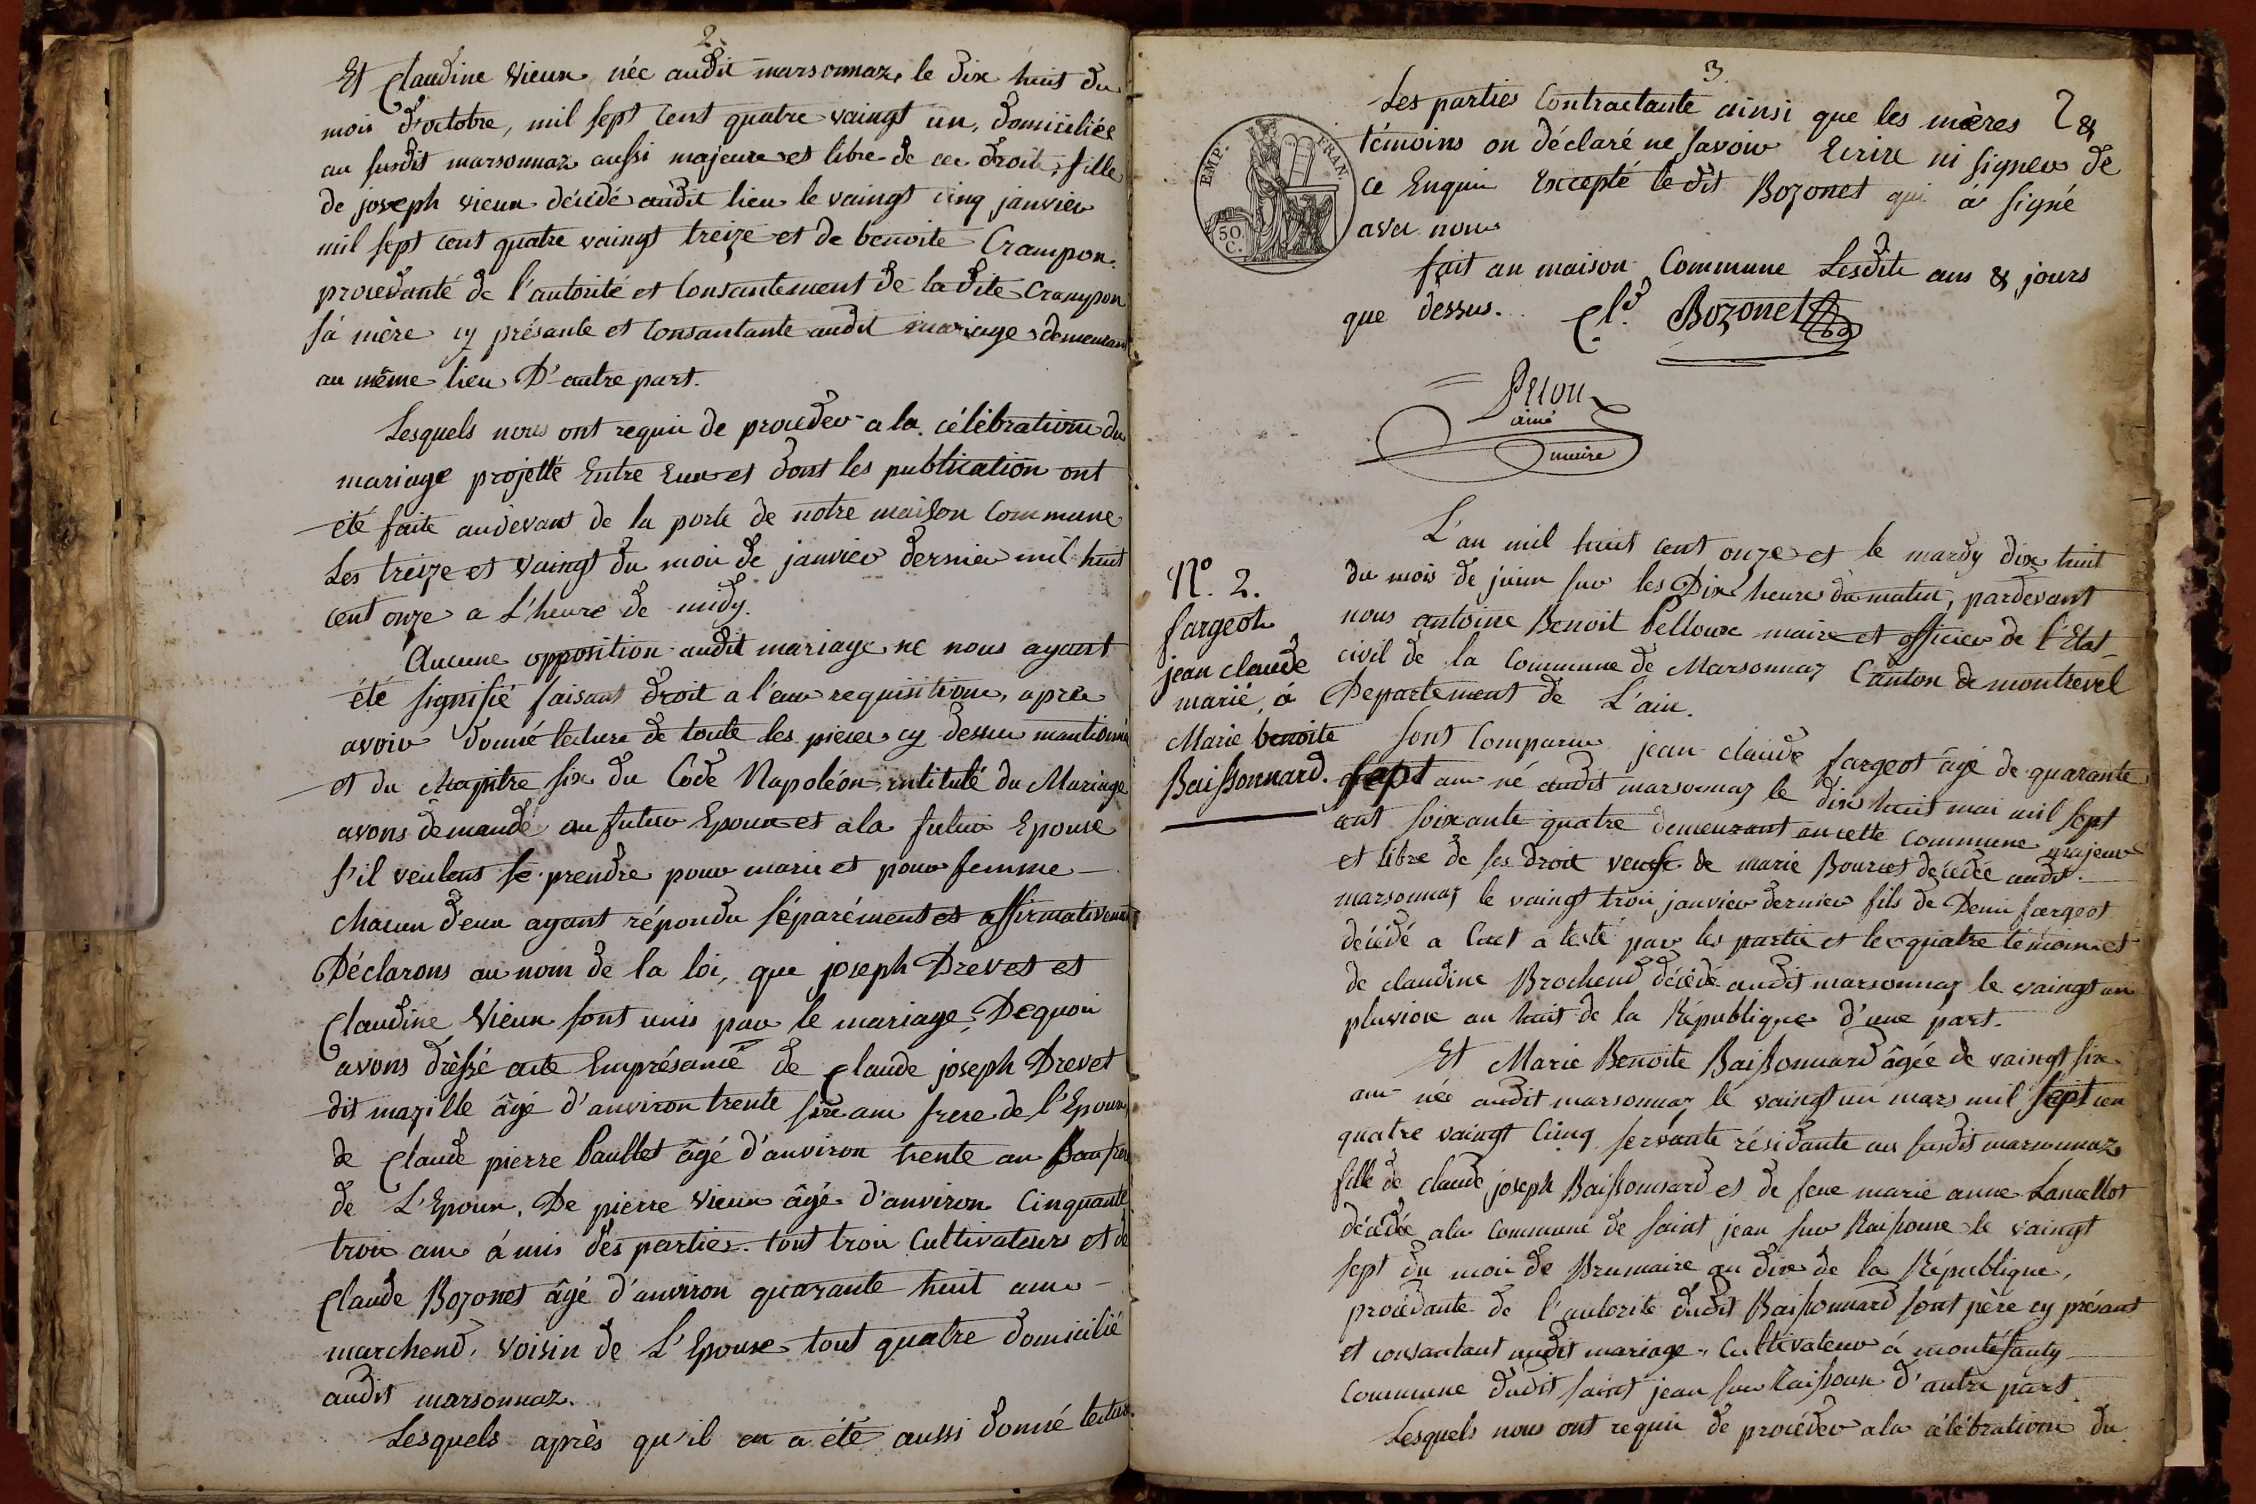 2.
Et Claudine Vieux née audit marsonnaz, le dix huit du
mois d'octobre, mil sept cent quatre vaingt un, domiciliée
au susdit marsonnaz aussi majeure et libre de ces droit, fille
de joseph vieux décédé audit lieu le vaingt cinq janvier
mil sept cent quatre vaingt treize et de benoite Crampon
procedante de l'autorité et Consantement de ladite Crampon
sa mère cy présante et Consantante audit mariage, demeurant
au même lieu D'autre part.
Lesquels nous ont requis de proceder a la célébrationt du
mariage projetté Entre Eux et dont les publication ont
été faite audevant de la porte de notre maison Commune
Les treize et vaingt du mois de janvier dernier mil huit
cent onze a L'heure de midy.
Aucune opposition audit mariage ne nous ayant
été signifié faisant droit a l'eur requisitione, apres
avoir donné lecture de toute les pieces cy dessus mantionné
et du Chapitre six du Code Napoléon, intitulé du Mariage
avons demandé au futur Epoux et ala futur Epouse
s'il veulent se prendre pour marie et pour femme
chacun d'eux ayant répondu séparément et affirmativement
Déclarons au nom de la loi, que joseph Drevet et
Claudine Vieux sont unis par le mariage, Dequoi
avons dressé acte Emprésance de Claude joseph Drevet
dit mazille âgé d'anviron trente six ans frere de l'Epoux
de Claude pierre Paullet âgé d'anviron trente an Beaufrere
de L'Epoux, De pierre Vieux âgé d'anviron Cinquante
trois ans ámis des parties. tout trois Cultivateurs et de
Claude Bozonet âgé d'anviron quarante huit ans
marchend, Voisin de L'Epouse tout quatre domicilié
audit marsonnaz.
Lesquels après qu'il en a été aussi donné lecture.
3.
Les parties Contractante ainsi que les mères &
EMP. FRAN.
50 C.
témoins on déclaré ne savoir Ecrire ni signer de
ce Enquis Excepté ledit Bozonet qui á signé
avec nous
fait an maison Commune Lesdits ans & jours
que dessus. Cld. Bozonet
ainé
maire
L'an mil huit cent onze et le mardy dix huit
du mois de juin sur les Dix heure du matin, pardevant
nous antoine Benoit Pelloux maire et officier de l'Etat
civil de la Commune de Marsonnaz Canton de montrevel
Departement de L'ain.
N.o 2.
fargeot
jean claude
marié, á
Marie benoite
Baissonnard.
Sont Comparu jean claude fargeot âgé de quarante
sept ans né audit marsonnaz le dix huit mai mil sept
cent soixante quatre demeurant an cette Commune majeur
et libre de ses droit veuf de marie Bourcet décédée audit
marsonnaz le vaingt trois janvier dernier fils de Denis fargeot
décédé a atesté par les partie et les quatre témoins et
de claudine Brochend décédé audit marsonnaz le vaingt un
pluviose an huit de la République d'une part.
Et Marie Benoite Baissonnard âgée de vaingt six
ans née audit marsonnaz le vaingt un mars mil sept cen
quatre vaingt Cinq servante résidante au susdit marsonnaz
fille de claude joseph Baissonnard et de feue marie anne Lancellot
décédée ala Commune de saint jean sur Raissouse le vaingt
sept du mois de Brumaire an dix de la République,
procédante de l'autorité dudit Baissonnard sont père cy présant
et consantant audit mariage, Cultivateur á montéfanty
Commune dudit saint jean sur Raissouse D'autre part
Lesquels nous ont requis de procéder ala célébrationt du